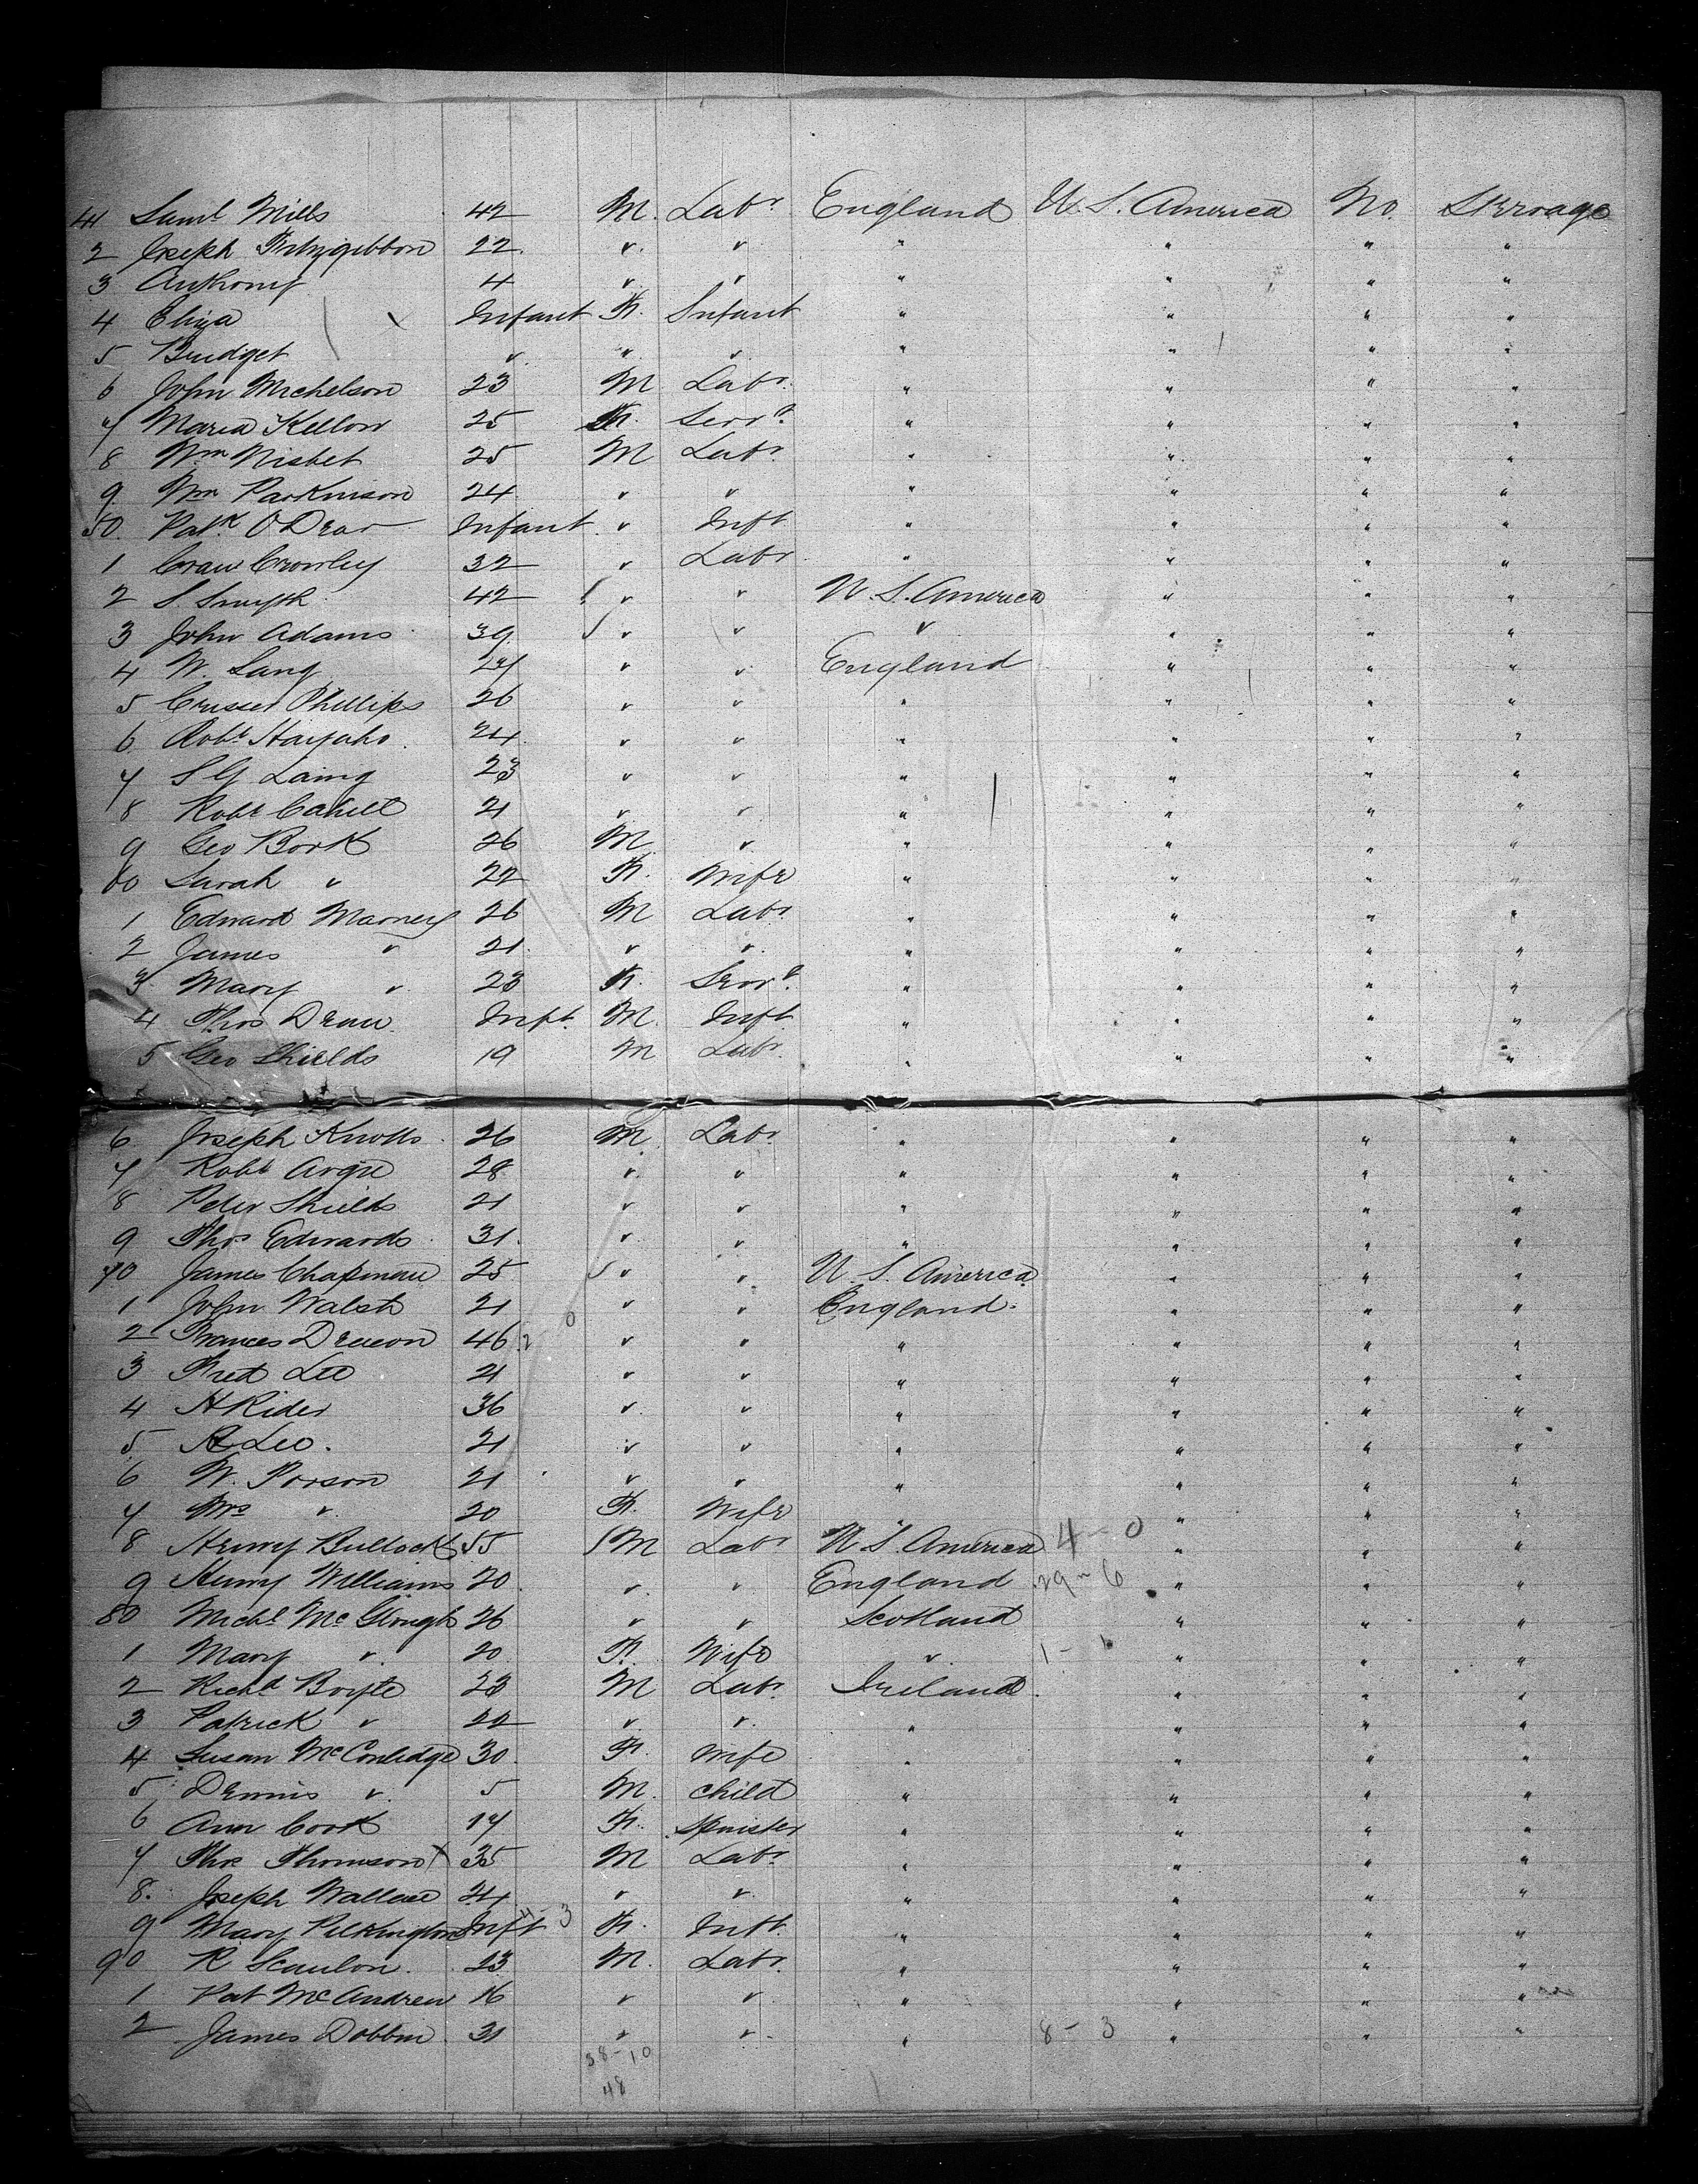 41 Saml Mills 42 M. Labr England U.S. America No. Steerage
2 Joseph Fitzgibbon 22 " " " " " "
3 Anthony 4 " " " " " "
4 Eliza Infant F. Infant " " " "
5 Bridget " " " " " " "
6 John Michelson 23 M Labr " " " "
7 Maria Kellow 25 F. Servt " " " "
8 Wm Nisbet 25 M Labr " " " "
9 Wm Parkinson 24 " " " " " "
50. Patk O Dea Infant " Inft " " " "
1 Crowley 32 " Labr " " " "
2 S. Smyth 42 " " U.S. America " " "
3 John Adams 39 " " " " " "
4 W. Lang 27 " " England " " "
5 Phillips 26 " " " " " "
6 Robt 24 " " " " " "
7 Laing 23 " " " " " "
8 Robt Cahill 21 " " " " " "
9 Geo Bork 26 M " " " " "
60 Sarah " 22 F. Wife " " " "
1 Edward Marney 26 M Labr " " " "
2 James " 21 " " " " " "
3 Mary " 23 F. Servt " " " "
4 Thos Inft. M. Inft " " " "
5 Geo Shields 19 M Labr " " " "
6 Joseph Knotts 26 M Labr " " " "
7 Robt Argue 28 " " " " " "
8 Peter Shields 21 " " " " " "
9 Thos Edwards 31 " " " " " "
70 James Chapman 25 " " U.S. America " " "
1 John Walsh 21 " " England " " "
2 Frances 46 " " " " " "
3 Fred Lee 21 " " " " " "
4 H Rider 36 " " " " " "
5 Lee. 21 " " " " " "
6 W. Porson 21 " " " " " "
7 Mrs " 20 F. Wife " " " "
8 Henry Bullock 55 M Labr U.S. America 4-0 " " "
9 Henry Williams 20 " " England 29-6 " " "
80 Michl Mc 26 " " Scotland " " "
1 Mary " 20 F. Wife " " " "
2 Richd Boyle 23 M Labr Ireland " " "
3 Patrick " 22 " " " " " "
4 Susan McConledge 30 F. Wife " " " "
5 Dennis " 5 M. child " " " "
6 Ann Cook 17 F. Spinster " " " "
7 Thos Thomson 35 M Labr " " " "
8. Joseph Wallace 24 " " " " " "
9 Mary Pilkington Inft F. Inft. " " " "
90 R Scanlon 23 M. Labr. " " " "
1 Pat McAndrew 16 " " " " " "
2 James Dobbin 31 " " " 8-3 " " "
38-10
48